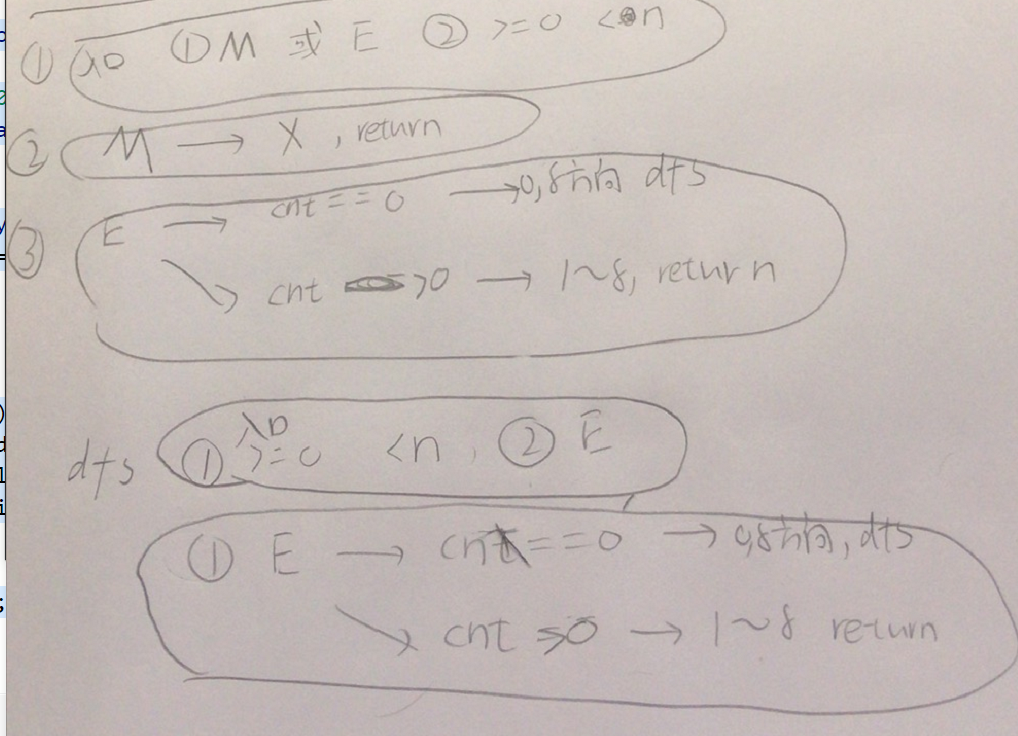 ① 入口 ① M 或 E ② >=0 <n
② M → X , return
③ E → cnt==0 → 0,8方向 dfs
↘ cnt >0 → 1~8, return
dfs ① 入口 >=0 <n , ② E
① E → cnt==0 → 0,8方向, dfs
↘ cnt >0 → 1~8 return